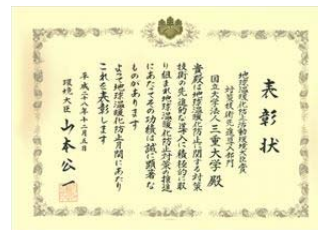 表彰状
地球温暖化防止活動環境大臣賞
対策技術先進導入部門
国立大学法人三重大学殿
貴殿は地球温暖化防止に関する対策
技術の先進的な導入に積極的に取
り組まれ地球温暖化防止対策の推進
にあたってその功績は誠に顕著な
ものがあります
よって地球温暖化防止月間にあたり
これを表彰します
平成二十八年十二月五日
環境大臣 山本公一